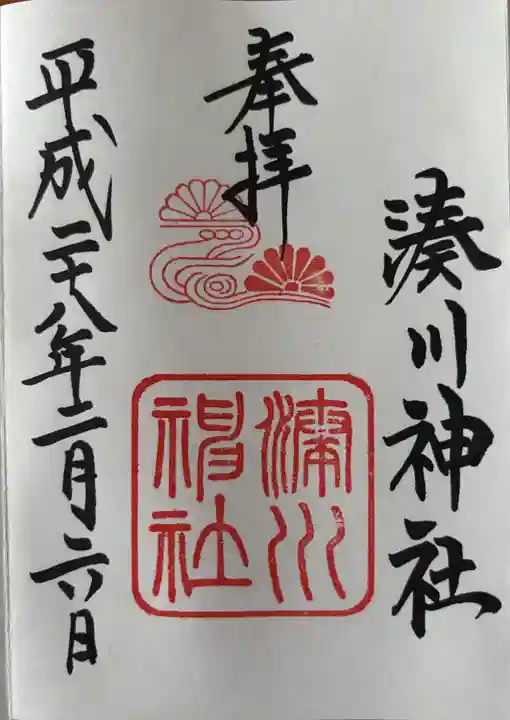 湊川神社
奉拝
湊川
神社
平成二十八年二月二六日